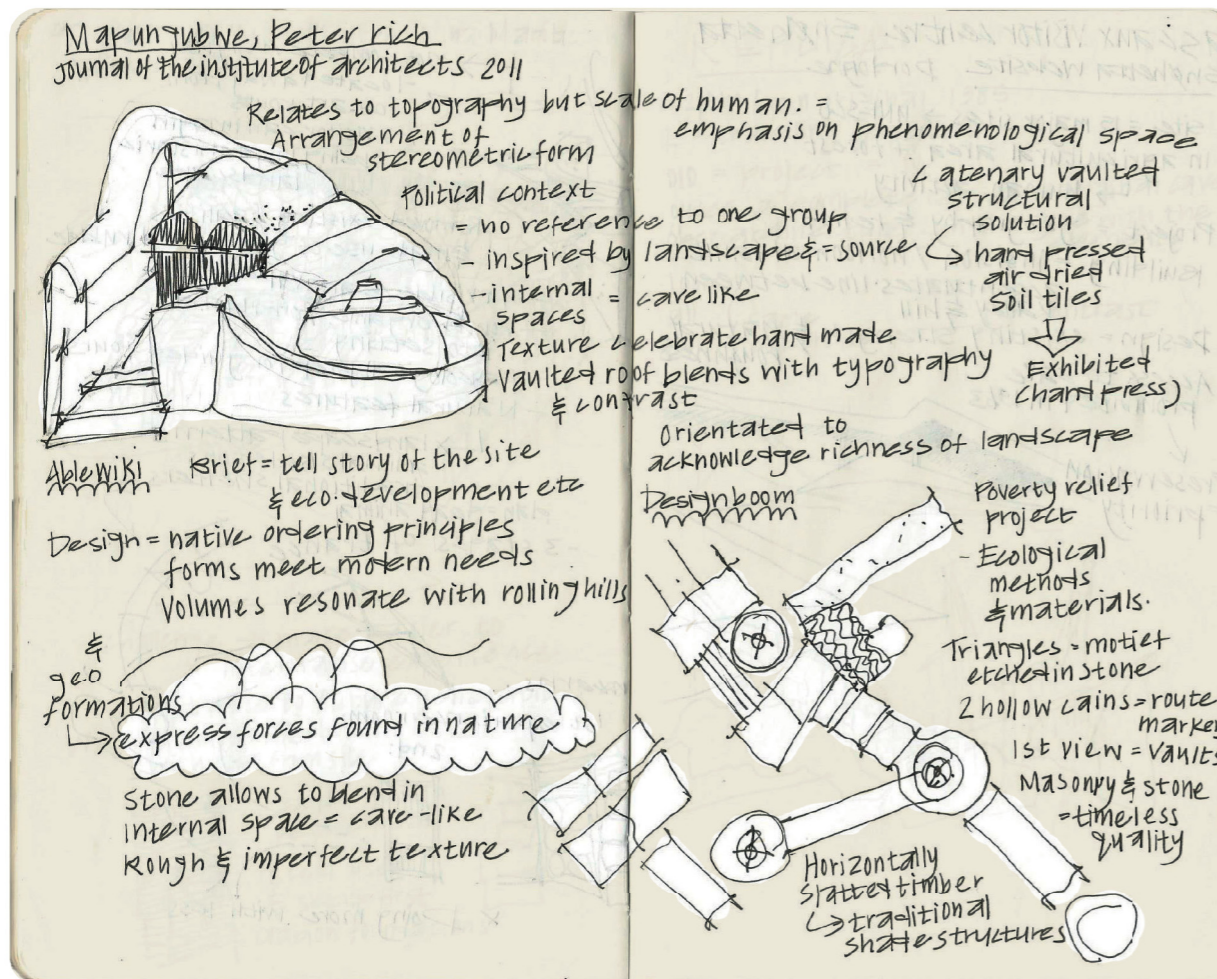 Mapungubwe, Peter rich
Journal of the institute of architects 2011
Relates to topography but scale of human. =
emphasis on phenomenological space
Arrangement of
stereometric form
Political context
= no reference to one group
- inspired by landscape & = source
- internal = cave like
spaces
Texture celebrate hand made
Vaulted roof blends with typography
& contrast
Catenary vaulted
structural
solution
hand pressed
air dried
soil tiles
Exhibited
(hand press)
Orientated to
acknowledge richness of landscape
Ablewiki
Brief = tell story of the site
& eco. development etc
Design = native ordering principles
forms meet modern needs
Volumes resonate with rolling hills
&
geo
formations
express forces found in nature
Stone allows to blend in
Internal space = cave-like
Rough & imperfect texture
Designboom
Poverty relief
project
- Ecological
methods
& materials.
Triangles = motief
etched in stone
2 hollow cains = route
marker
1st view = vaults
Masonry & stone
= timeless
quality
Horizontally
slatted timber
traditional
shade structures